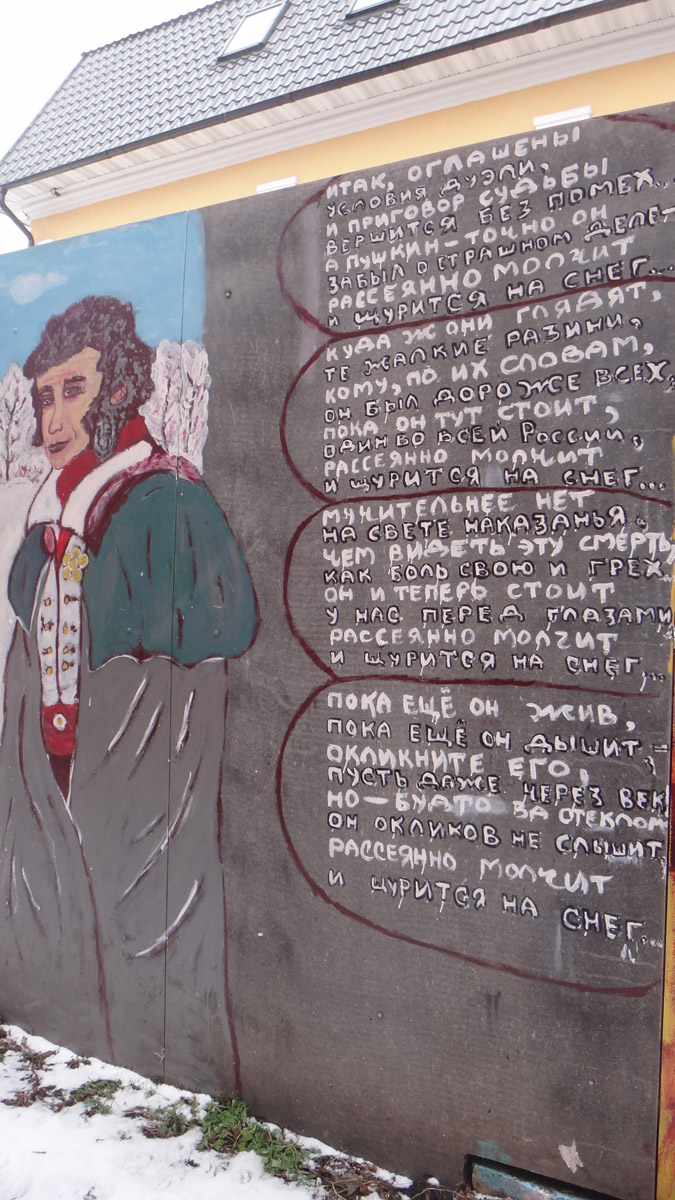 ИТАК, ОГЛАШЕНЫ
УСЛОВИЯ ДУЭЛИ,
И ПРИГОВОР СУДЬБЫ
ВЕРШИТСЯ БЕЗ ПОМЕХ...
А ПУШКИН – ТОЧНО ОН
ЗАБЫЛ О СТРАШНОМ ДЕЛЕ –
РАССЕЯННО МОЛЧИТ
И ЩУРИТСЯ НА СНЕГ...
КУДА Ж ОНИ ГЛЯДЯТ,
ТЕ ЖАЛКИЕ РАЗИНИ,
КОМУ, ПО ИХ СЛОВАМ,
ОН БЫЛ ДОРОЖЕ ВСЕХ,
ПОКА ОН ТУТ СТОИТ,
ОДИН ВО ВСЕЙ РОССИИ,
РАССЕЯННО МОЛЧИТ
И ЩУРИТСЯ НА СНЕГ...
МУЧИТЕЛЬНЕЕ НЕТ
НА СВЕТЕ НАКАЗАНЬЯ,
ЧЕМ ВИДЕТЬ ЭТУ СМЕРТЬ
КАК БОЛЬ СВОЮ И ГРЕХ...
ОН И ТЕПЕРЬ СТОИТ
У НАС ПЕРЕД ГЛАЗАМИ
РАССЕЯННО МОЛЧИТ
И ЩУРИТСЯ НА СНЕГ...
ПОКА ЕЩЁ ОН ЖИВ,
ПОКА ЕЩЁ ОН ДЫШИТ –
ОКЛИКНИТЕ ЕГО,
ПУСТЬ ДАЖЕ ЧЕРЕЗ ВЕК
НО – БУДТО ЗА СТЕКЛОМ
ОН ОКЛИКОВ НЕ СЛЫШИТ,
РАССЕЯННО МОЛЧИТ
И ЩУРИТСЯ НА СНЕГ...